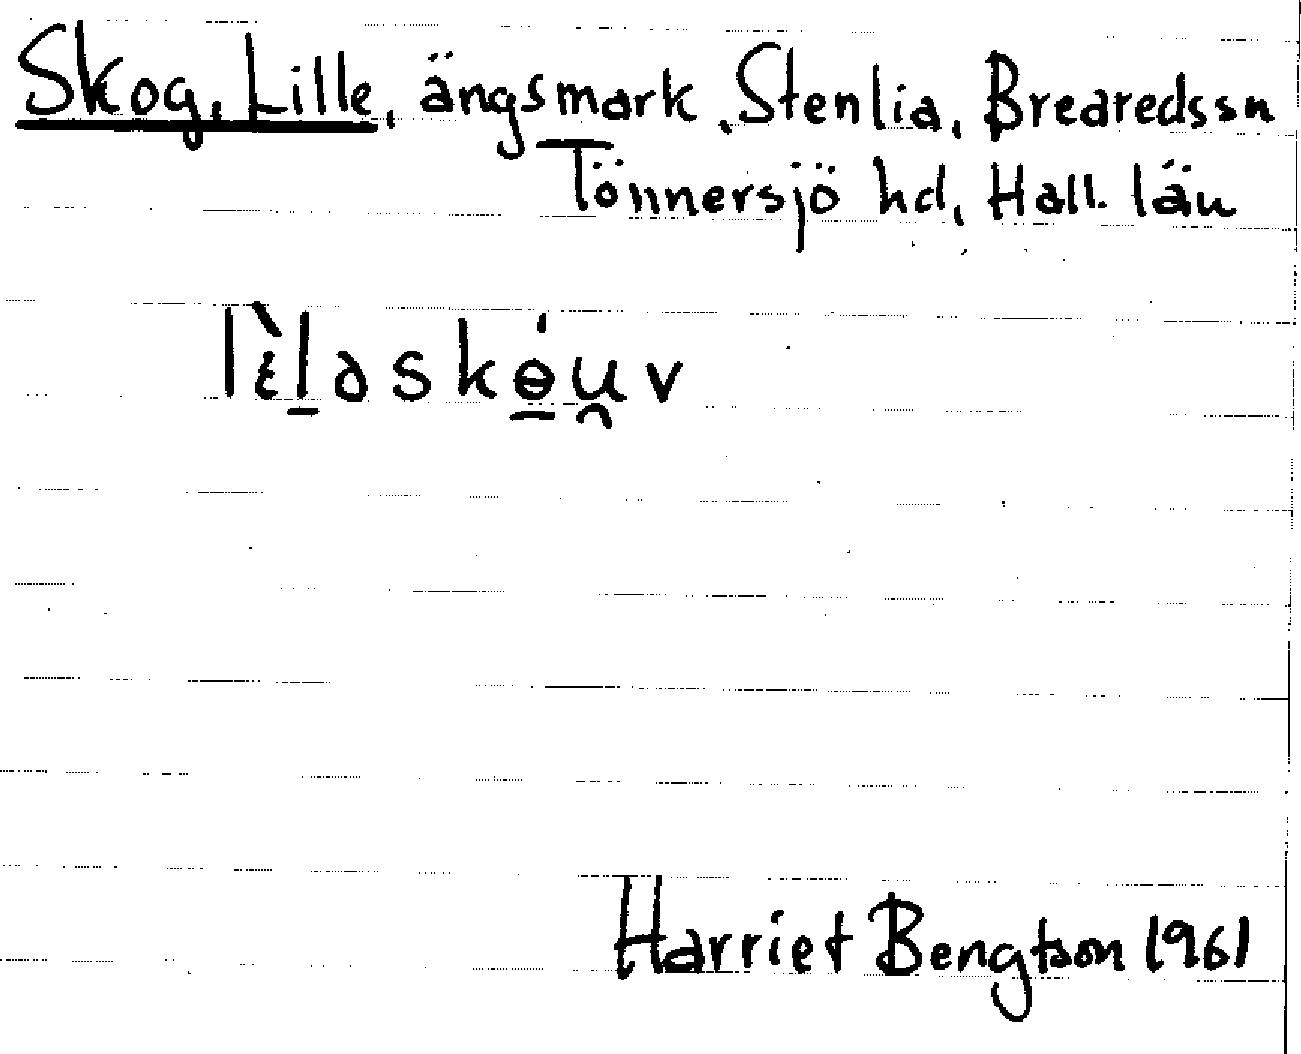 Skog, Lille, ängsmark, Stenlia, Brearedssn
Tönnersjö hd, Hall. län
lɛ̀l̠əskɵ̠́u̯v
Harriet Bengtson 1961